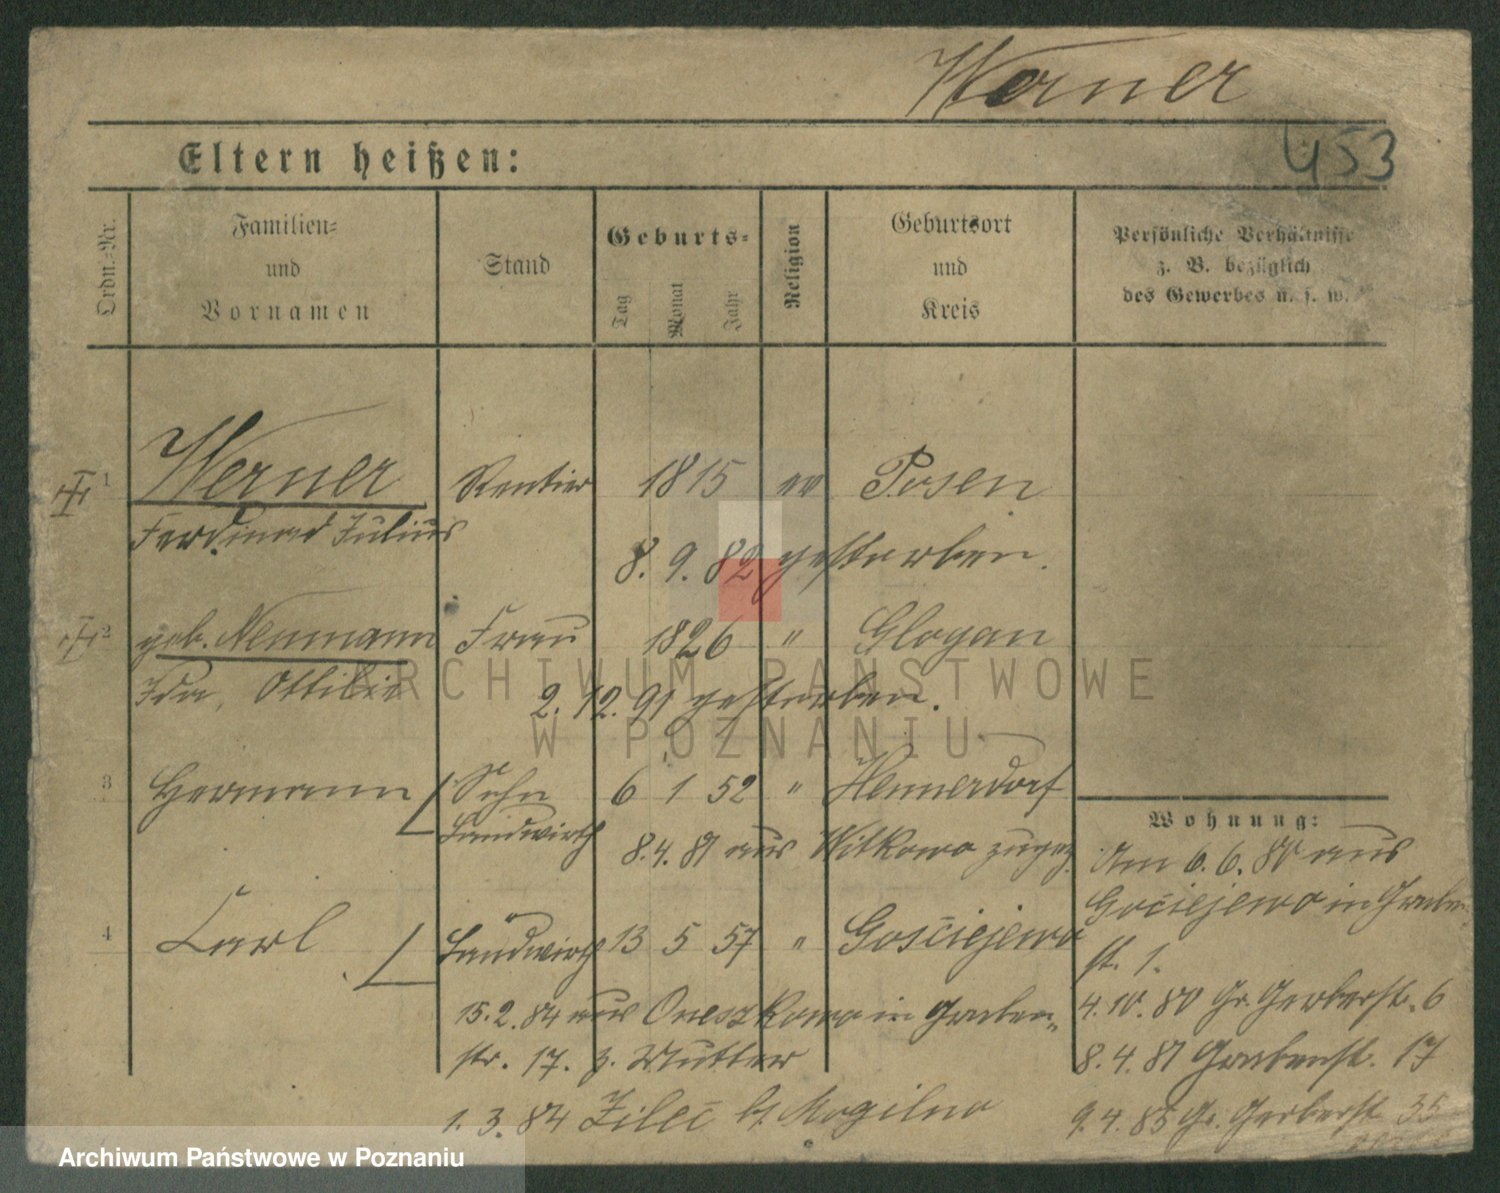 Werner
453
Eltern heißen:
Ordn.-Nr.
Familien-
und
Vornamen
Stand
Geburts-
Tag
Monat
Jahr
Religion
Geburtsort
und
Kreis
Persönliche Verhältnisse
z. B. bezüglich
des Gewerbes u. s. w.
1 Werner Rentier 1815 ev Posen
Ferdinand Julius
8. 9. 82 gestorben.
2 geb. Neumann Frau 1826 " Glogau
Ida, Ottilie
2. 12. 91 gestorben.
3 Hermann Sohn 6 1 52 " Hennersdorf
Landwirth
8. 4. 81 aus Witkowo zugez.
4 Carl Landwirth 13 5 57 " Gościejewo
15. 2. 84 aus in Graben-
str. 17. z. Mutter
1. 3. 84 b/ Mogilno
Wohnung:
Am 6. 6. 80 aus
Gościejewo in Graben
st. 1.
4. 10. 80 Gr. Gerberst. 6
8. 4. 81 Grabenst. 17
9. 4. 85 Gr. Gerberst 35
ARCHIWUM PAŃSTWOWE
W POZNANIU
Archiwum Państwowe w Poznaniu